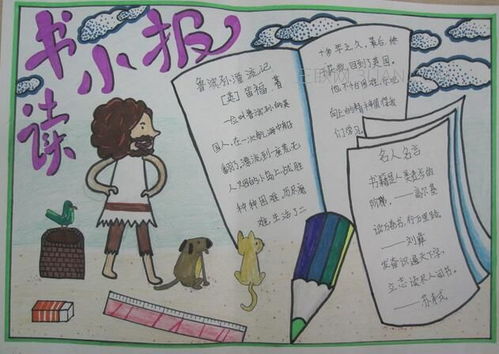 读书小报
鲁滨孙漂流记
[英]笛福 著
一位叫鲁滨孙的英
国人,在一次航海中船
翻了,漂流到一座荒无
人烟的小岛上,战胜
种种困难,历尽艰
难,生活了二
十多年之久,最后,他
回到了英国。
他不怕困难,
向上的精神值得我
们学习。
名人名言
书籍是人类进步的
阶梯。——高尔基
读万卷书,行万里路
——刘彝
发奋识遍天下字,
立志读尽人间书。
——苏轼